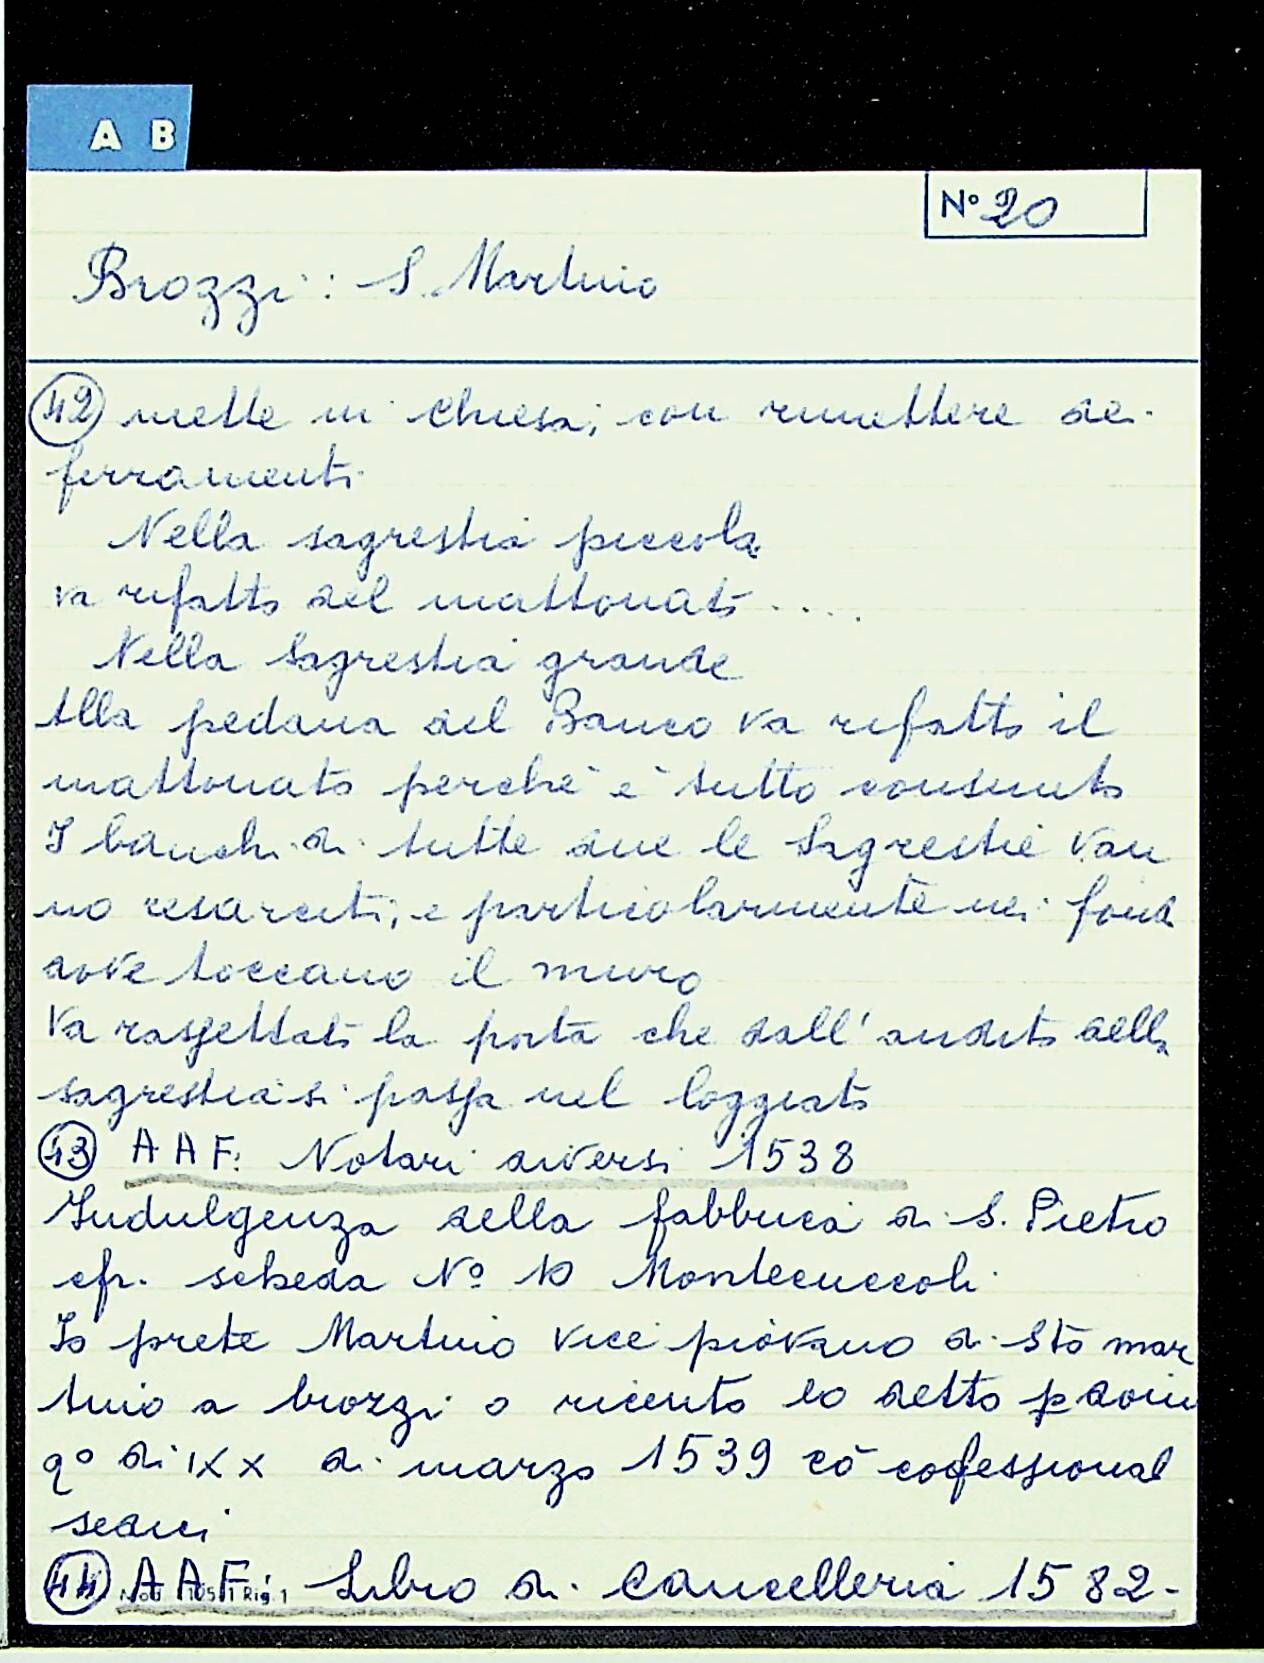 A B
N° 20
Brozzi: S. Martino
42 mette in chiesa, con rimettere dei
ferramenti
Nella sagrestia piccola
va rifatto del mattonato ....
Nella Sagrestia grande
Alla pedana del Banco va rifatto il
mattonato perchè è tutto consunto
I banchi di tutte due le Sagrestie van
no resarciti, e particolarmente nei fondi
dove toccano il muro
Va rassettata la porta che dall'andito della
sagrestia si passa nel loggiato
43 AAF: Notari diversi 1538
Indulgenza della fabbrica di S. Pietro
cfr. scheda N° 10 Montecuccoli
Io prete Martino vice piovano di Sto mar
tino a brozzi o riceuto lo detto p domi
go di IXX di marzo 1539 cō cofessional
sedici
44 AAF: Libro di Cancelleria 1582-